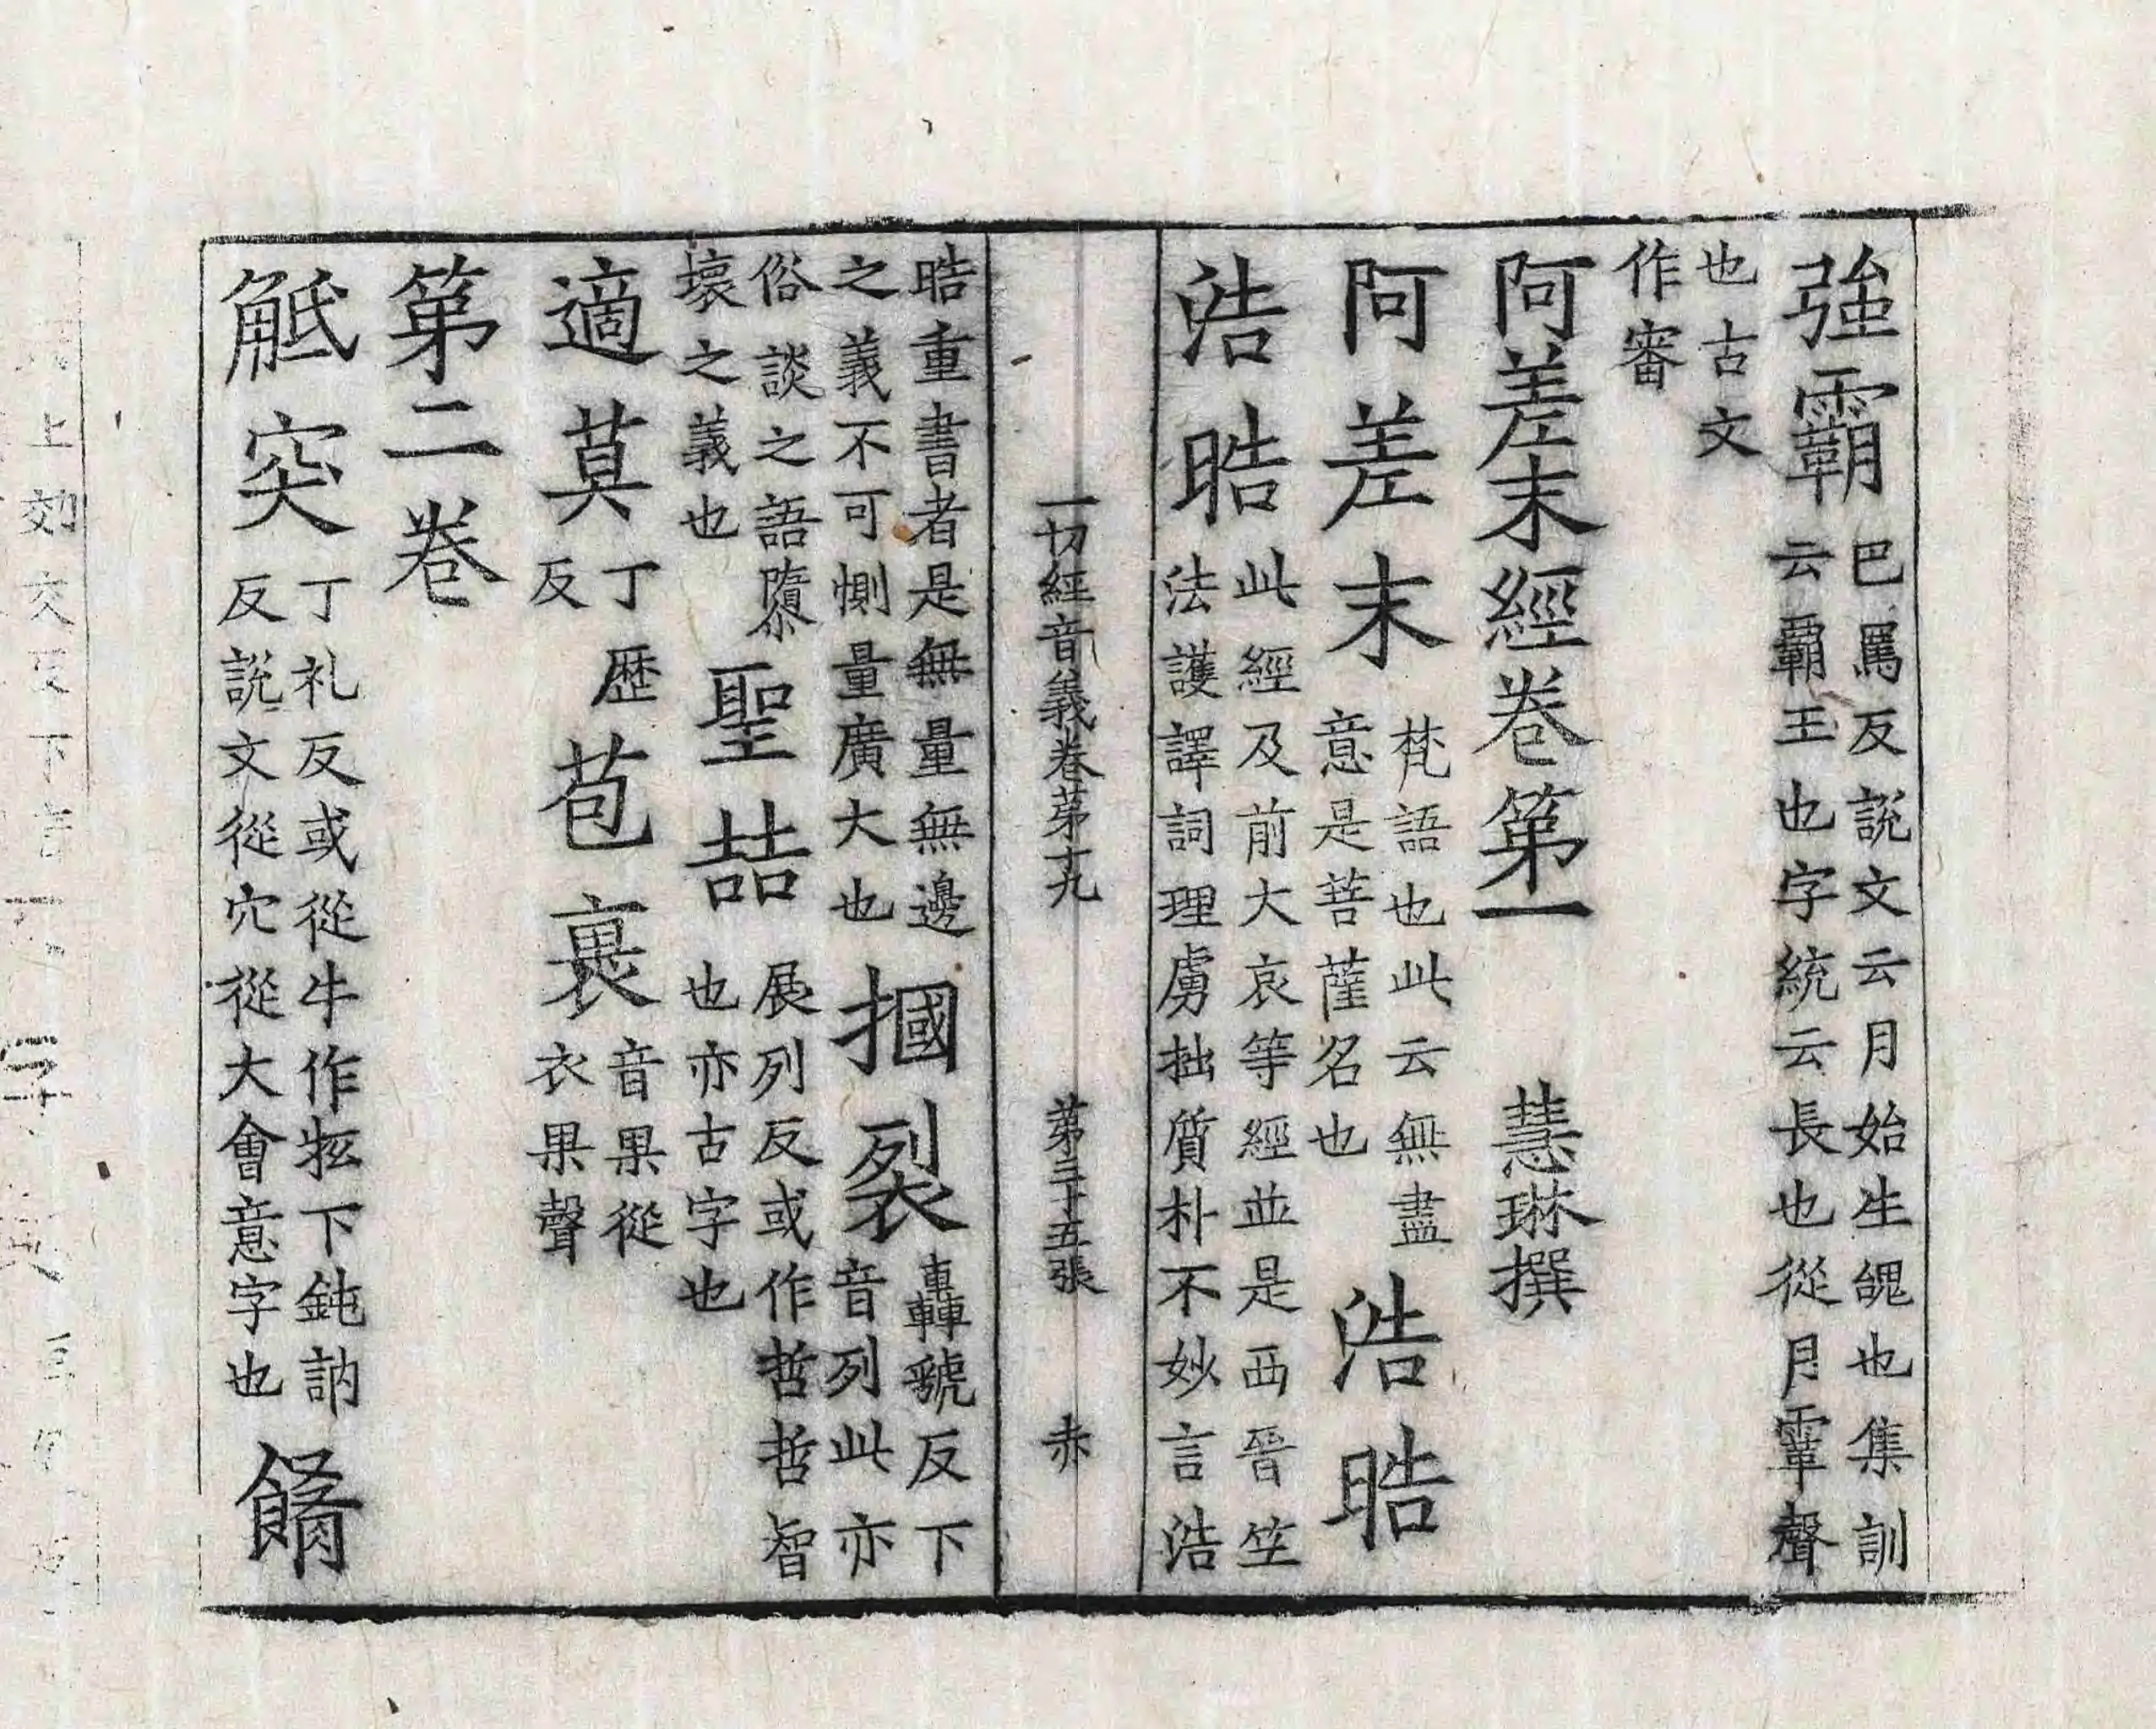 強霸巴罵反説文云月始生䰟也集訓
云覇王也字統云長也從月䨣聲
也古文
作㝟
阿差末經卷第一 慧琳撰
阿差末梵語也此云無盡
意是菩薩名也浩晧
浩晧此經及前大哀等經並是西晉竺
法護譯詞理虜拙質朴不妙言浩
一切經音義卷苐十九 苐三十五張 赤
晧重書者是無量無邊
之義不可惻量廣大也摑裂轟虢反下
音列此亦
俗談之語隳
壞之義也聖喆展列反或作哲哲智
也亦古字也
適莫丁歷
反苞裹音果從
衣果聲
第二卷
觝突丁礼反或從牛作牴下鈍訥
反説文從穴從大會意字也